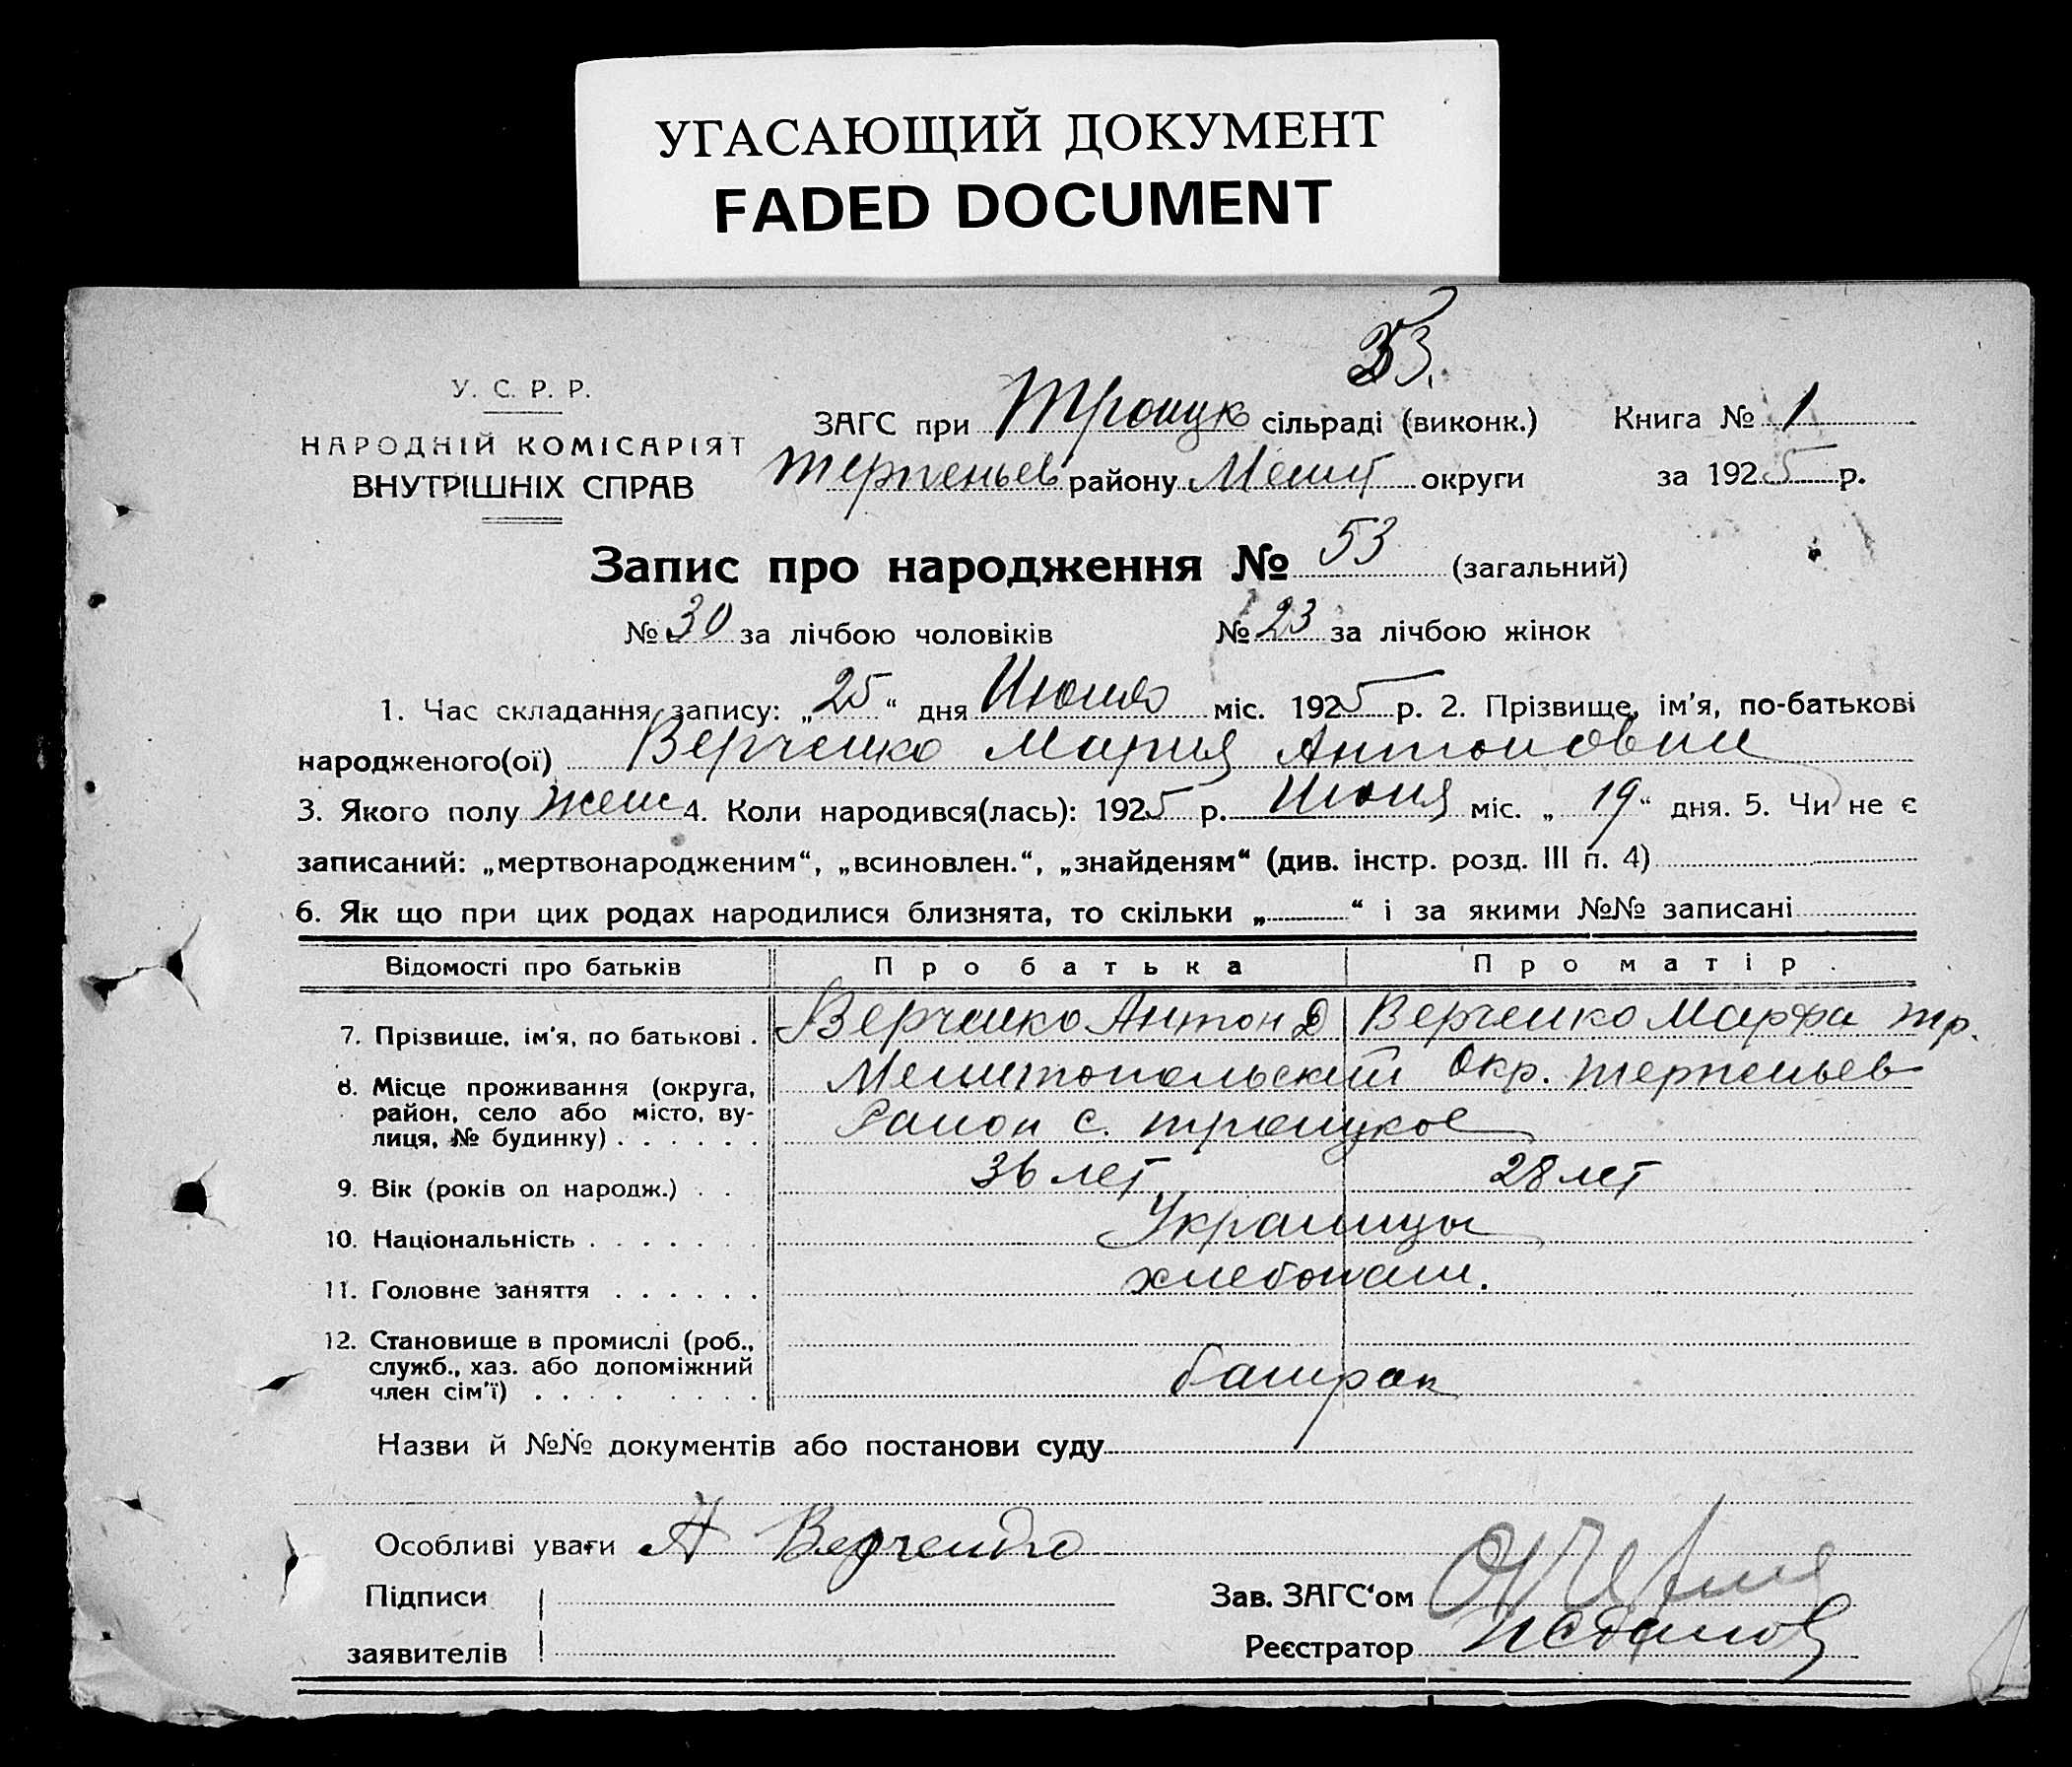 УГАСАЮЩИЙ ДОКУМЕНТ
FADED DOCUMENT
53.
У. С. Р. Р.
НАРОДНІЙ КОМІСАРІЯТ
ВНУТРІШНІХ СПРАВ
ЗАГС при Троицк сільраді (виконк.) Книга № 1
Терпеньев району Мелит округи за 1925 р.
Запис про народження № 53 (загальний)
№ 30 за лічбою чоловіків № 23 за лічбою жінок
1. Час складання запису: „25“ дня Июня міс. 1925 р. 2. Прізвище, ім'я, по-батькові
народженого(ої) Верченко Мария Антоновна
3. Якого полу жен 4. Коли народився(лась): 1925 р. Июня міс. „19“ дня. 5. Чи не є
записаний: „мертвонародженим“, „всиновлен.“, „знайденям“ (див. інстр. розд. III п. 4)
6. Як що при цих родах народилися близнята, то скільки „ “ і за якими №№ записані
Відомості про батьків Про батька Про матір.
7. Прізвище, ім'я, по батькові . Верченко Антон Д Верченко Марфа Тр.
8. Місце проживання (округа, Мелитопольский Окр. Терпеньев
район, село або місто, ву- Район с. Троицкое
лиця, № будинку) . . . . . .
9. Вік (років од народж.) . . 36 лет 28 лет
10. Національність . . . . . . . Украинцы
11. Головне заняття . . . . . . хлебопаш.
12. Становище в промислі (роб.,
служб., хаз. або допоміжний
член сім'ї) . . . . . . . . батрак
Назви й №№ документів або постанови суду
Особливі уваги А Верченко
Підписи Зав. ЗАГС'ом
заявителів Реєстратор